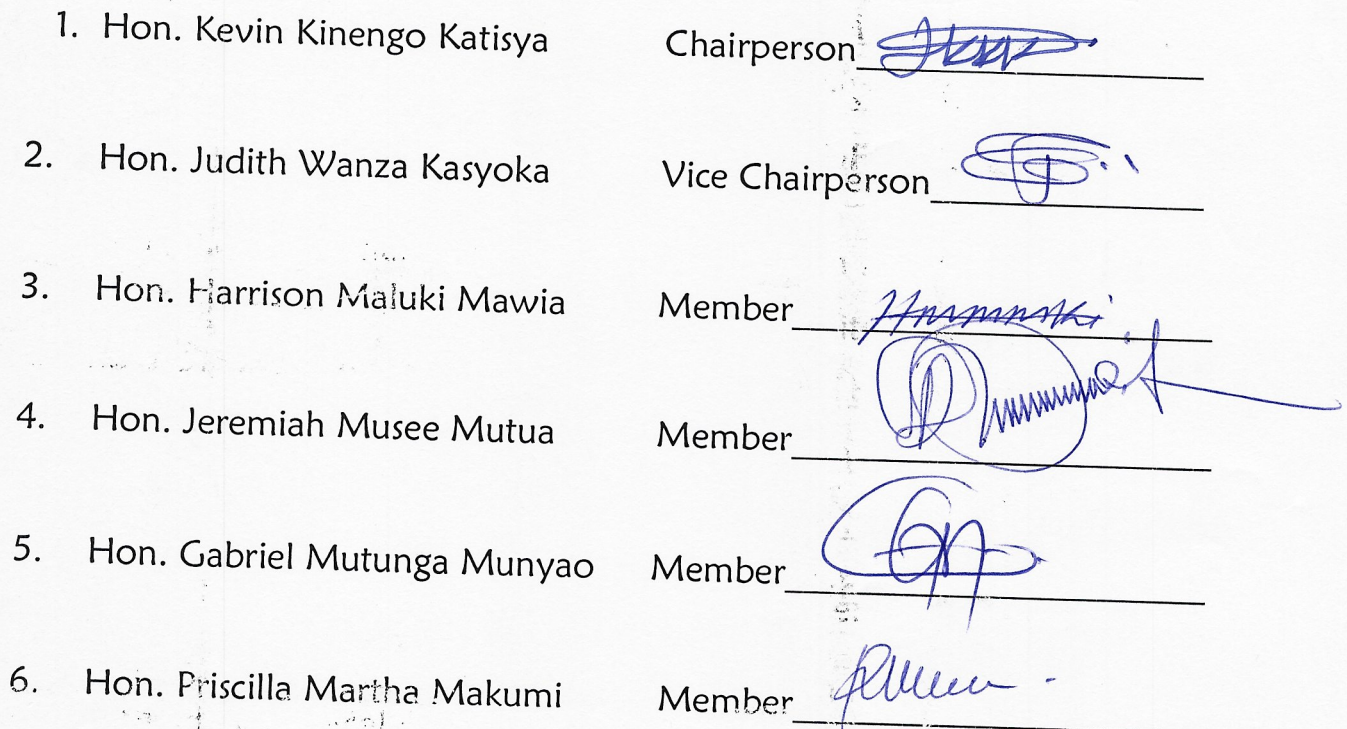 1. Hon. Kevin Kinengo Katisya Chairperson
2. Hon. Judith Wanza Kasyoka Vice Chairperson
3. Hon. Harrison Maluki Mawia Member
4. Hon. Jeremiah Musee Mutua Member
5. Hon. Gabriel Mutunga Munyao Member
6. Hon. Priscilla Martha Makumi Member